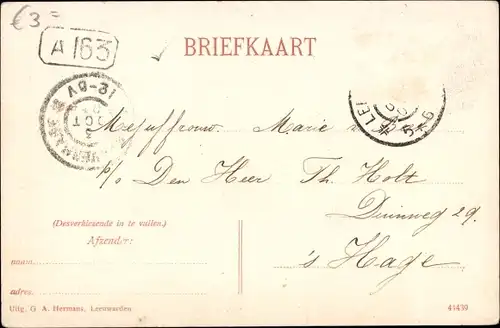 €3=
A 163
BRIEFKAART
12-6V
3 OCT
Mejuffrouw. Marie
p/o Den Heer Th. Holt
Duinweg 29.
's Hage
(Desverkiezende in te vullen.)
Afzender:
naam.
adres.
Uitg. G. A. Hermans, Leeuwarden
41439